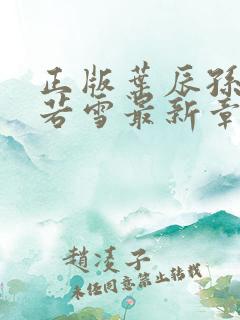 正版葉辰孫
若雪最新章
趙凌子
未经同意禁止转载